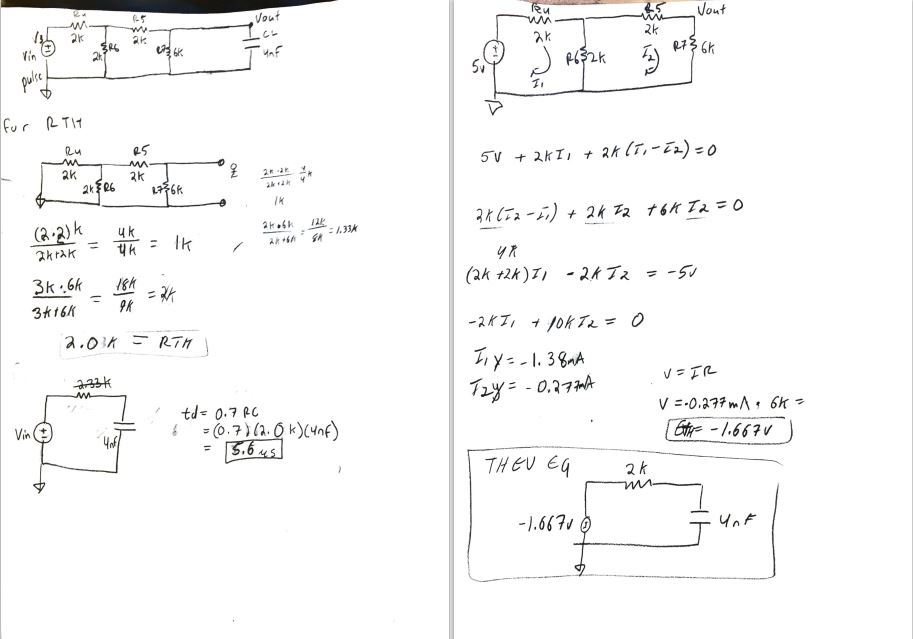 R4
R5
Vout
Vs
2K
2K
CL
Vin
2K
R6
R7
6K
4nF
pulse
For RTH
R4
R5
2K
2K
2K
R6
R7
6K
2K·2K
2K+2K
4
4
K
1K
(2·2)K
2K+2K
=
4K
4K
= 1K
2K·6K
2K+6K
=
12K
8K
= 1.33K
3K·6K
3K+6K
=
18K
9K
= 2K
2.0 K = RTH
2.33K
Vin
4nF
td = 0.7 RC
= (0.7)(2.0 K)(4nF)
= 5.6 us
R4
R5
Vout
2K
2K
5V
R6
2K
I2
R7
6K
I1
5V + 2KI1 + 2K(I1-I2) = 0
2K(I2-I1) + 2K I2 + 6K I2 = 0
4K
(2K+2K)I1 - 2K I2 = -5V
-2KI1 + 10K I2 = 0
I1 = -1.38mA
I2 = -0.277mA
V = IR
V = -0.277mA · 6K =
= -1.667V
THEV EQ
2K
-1.667V
4nF